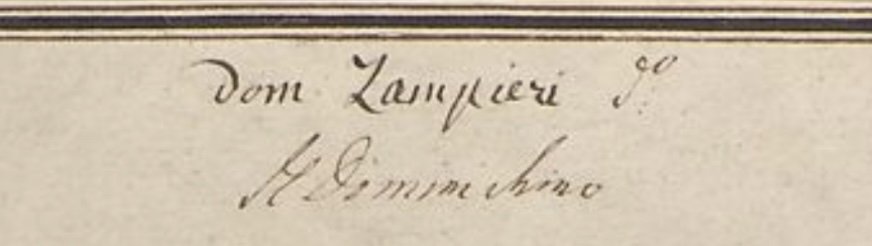 Dom Zampieri d.º
Il Dominichino